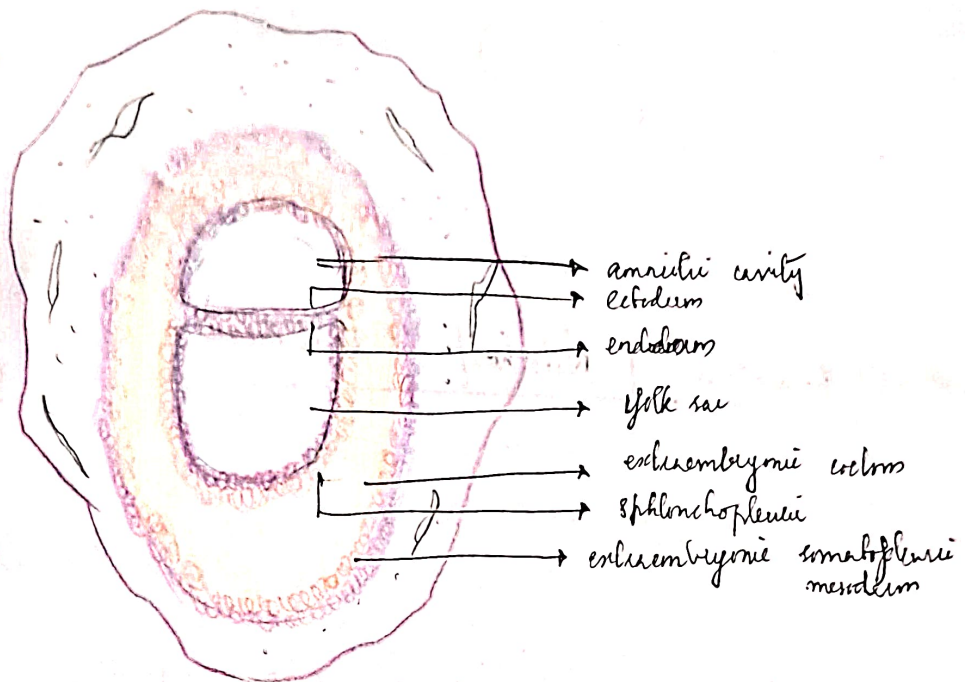 amniotic cavity
ectoderm
endoderm
yolk sac
extraembryonic coelom
sphlonchopleuric
extraembryonic somatopleuric
mesoderm